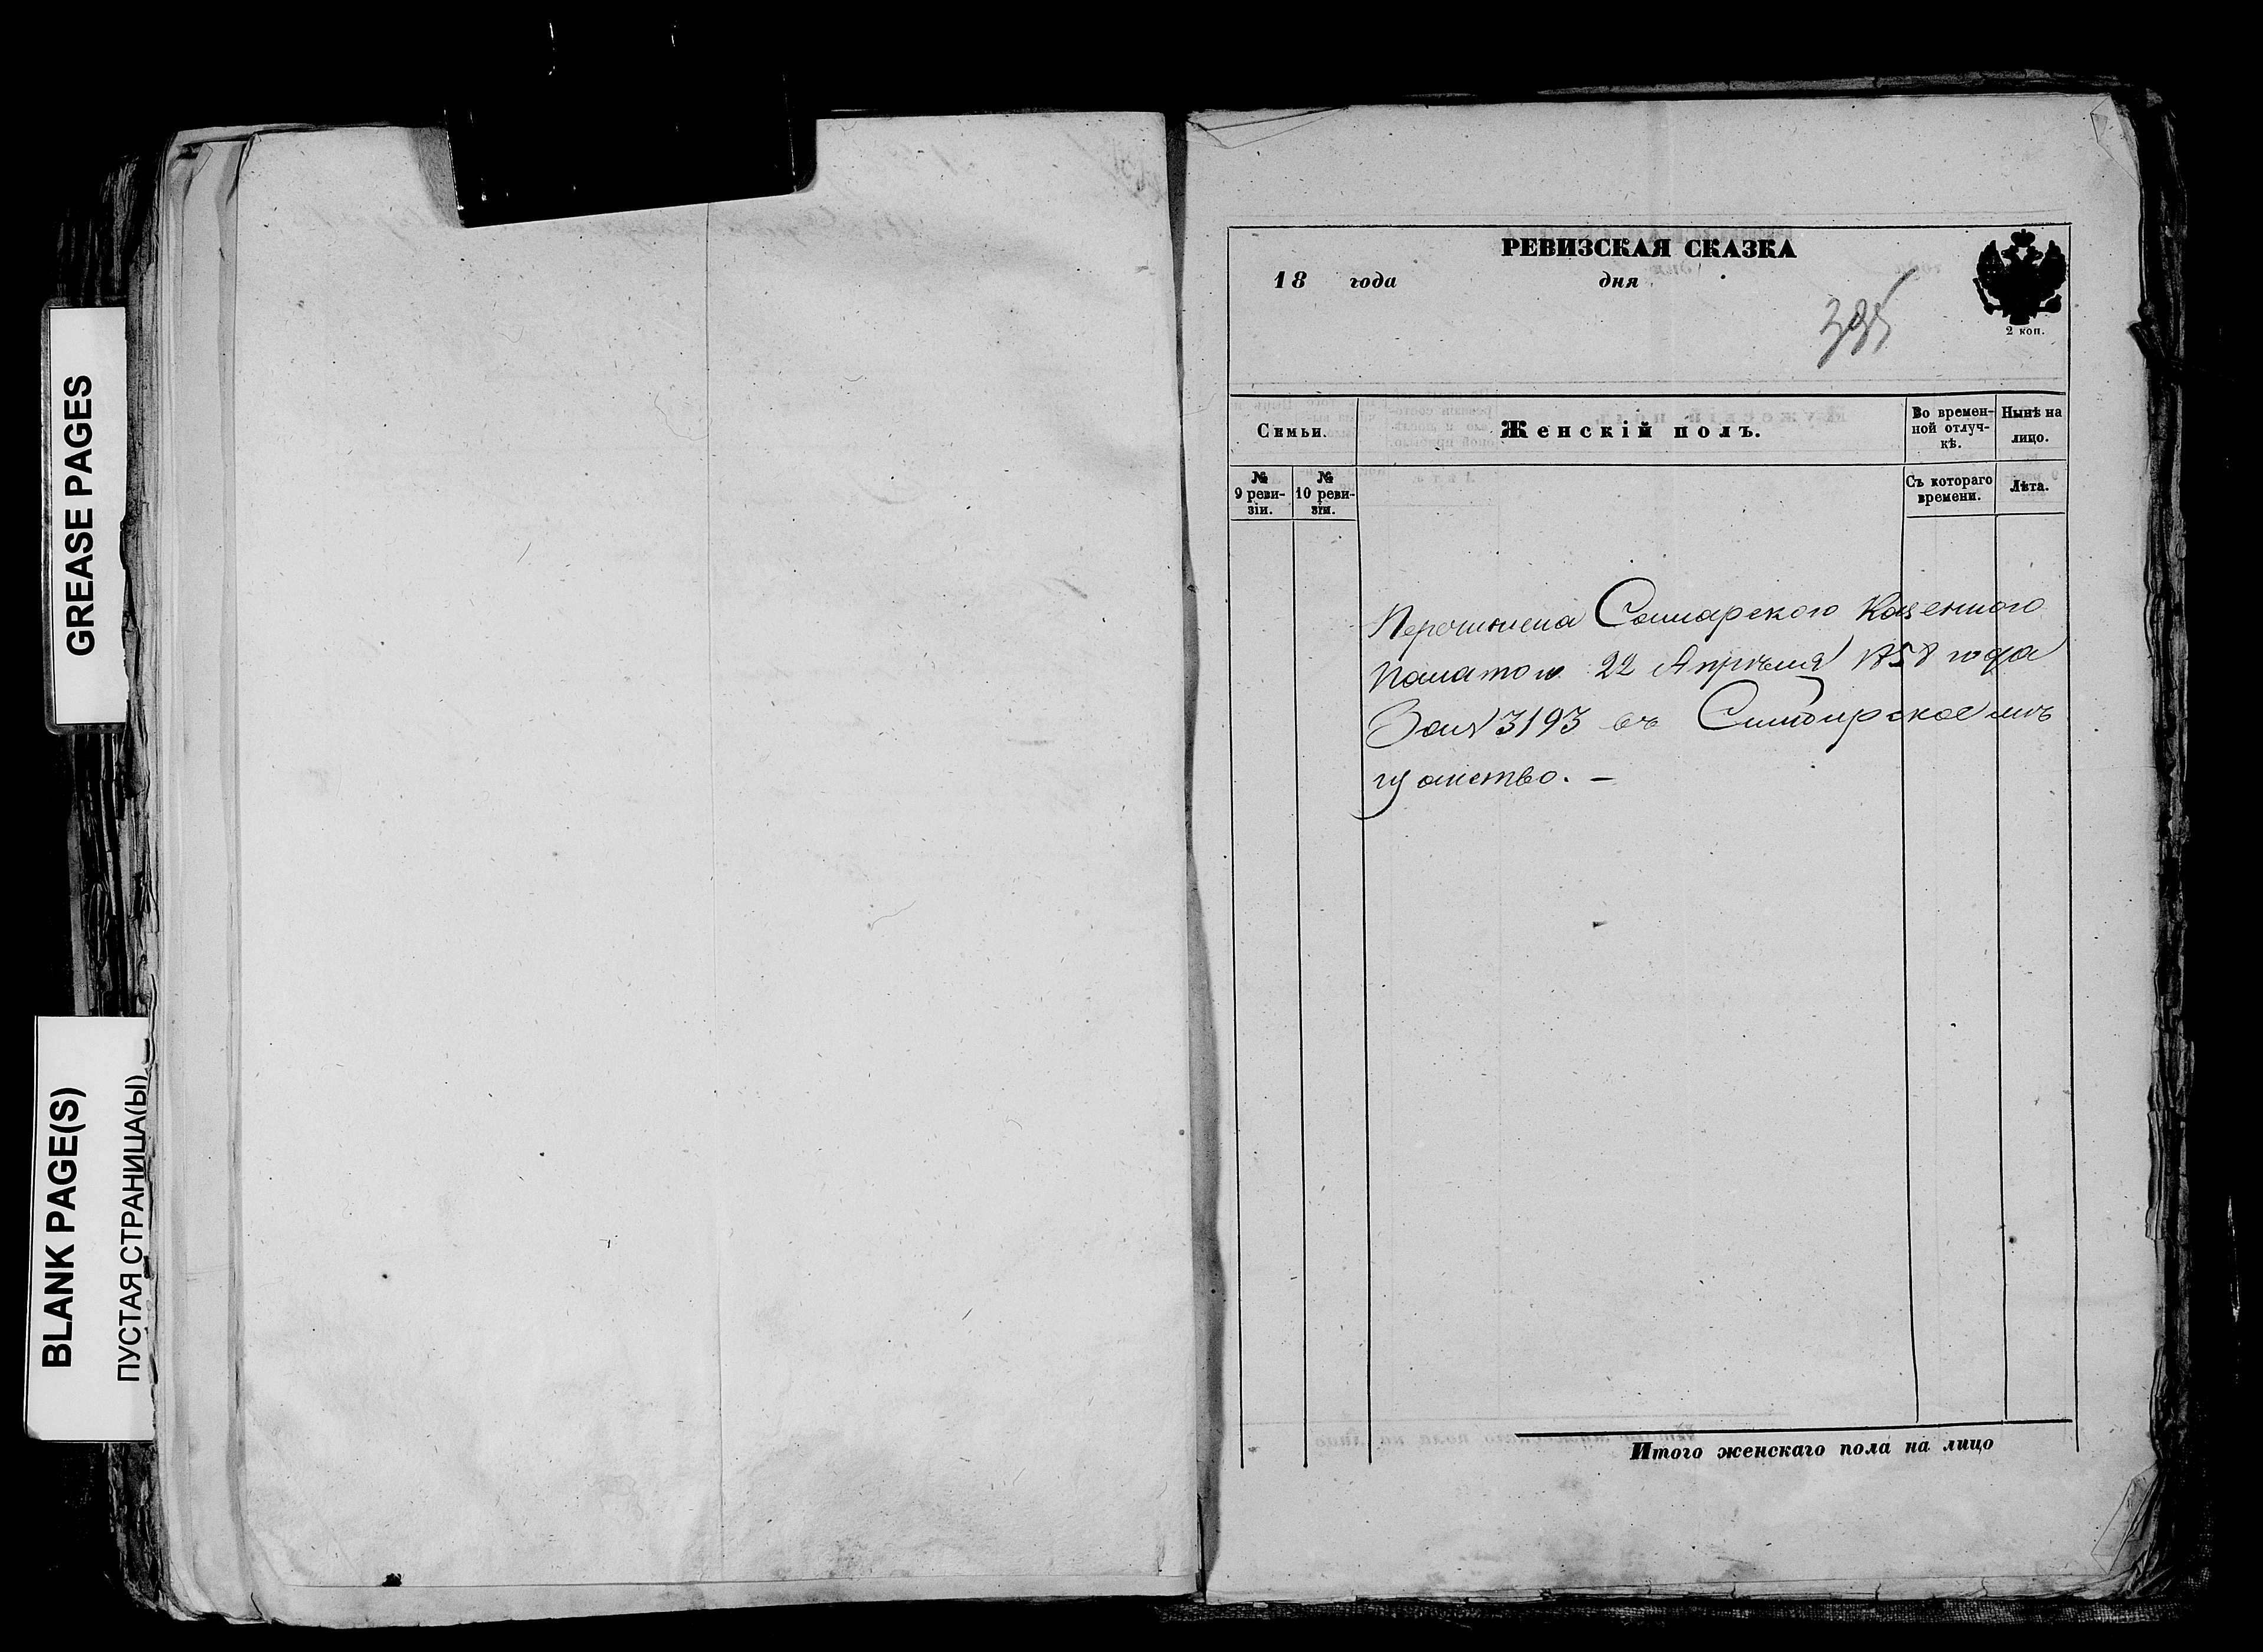 GREASE PAGES
BLANK PAGE(S)
ПУСТАЯ СТРАНИЦА(Ы)
РЕВИЗСКАЯ СКАЗКА
18 года дня
395
2 коп.
Семьи.
Женскій полъ.
Во времен-
ной отлуч-
кѣ.
Нынѣ на
лицо.
№
9 реви-
зіи.
№
10 реви-
зіи.
Съ котораго
времени.
Лѣта.
Перечислена Самарскою Казенною
палатою 22 Апрѣля 1858 года
За № 3193 въ Симбирское мѣ
щанство. —
Итого женскаго пола на лицо